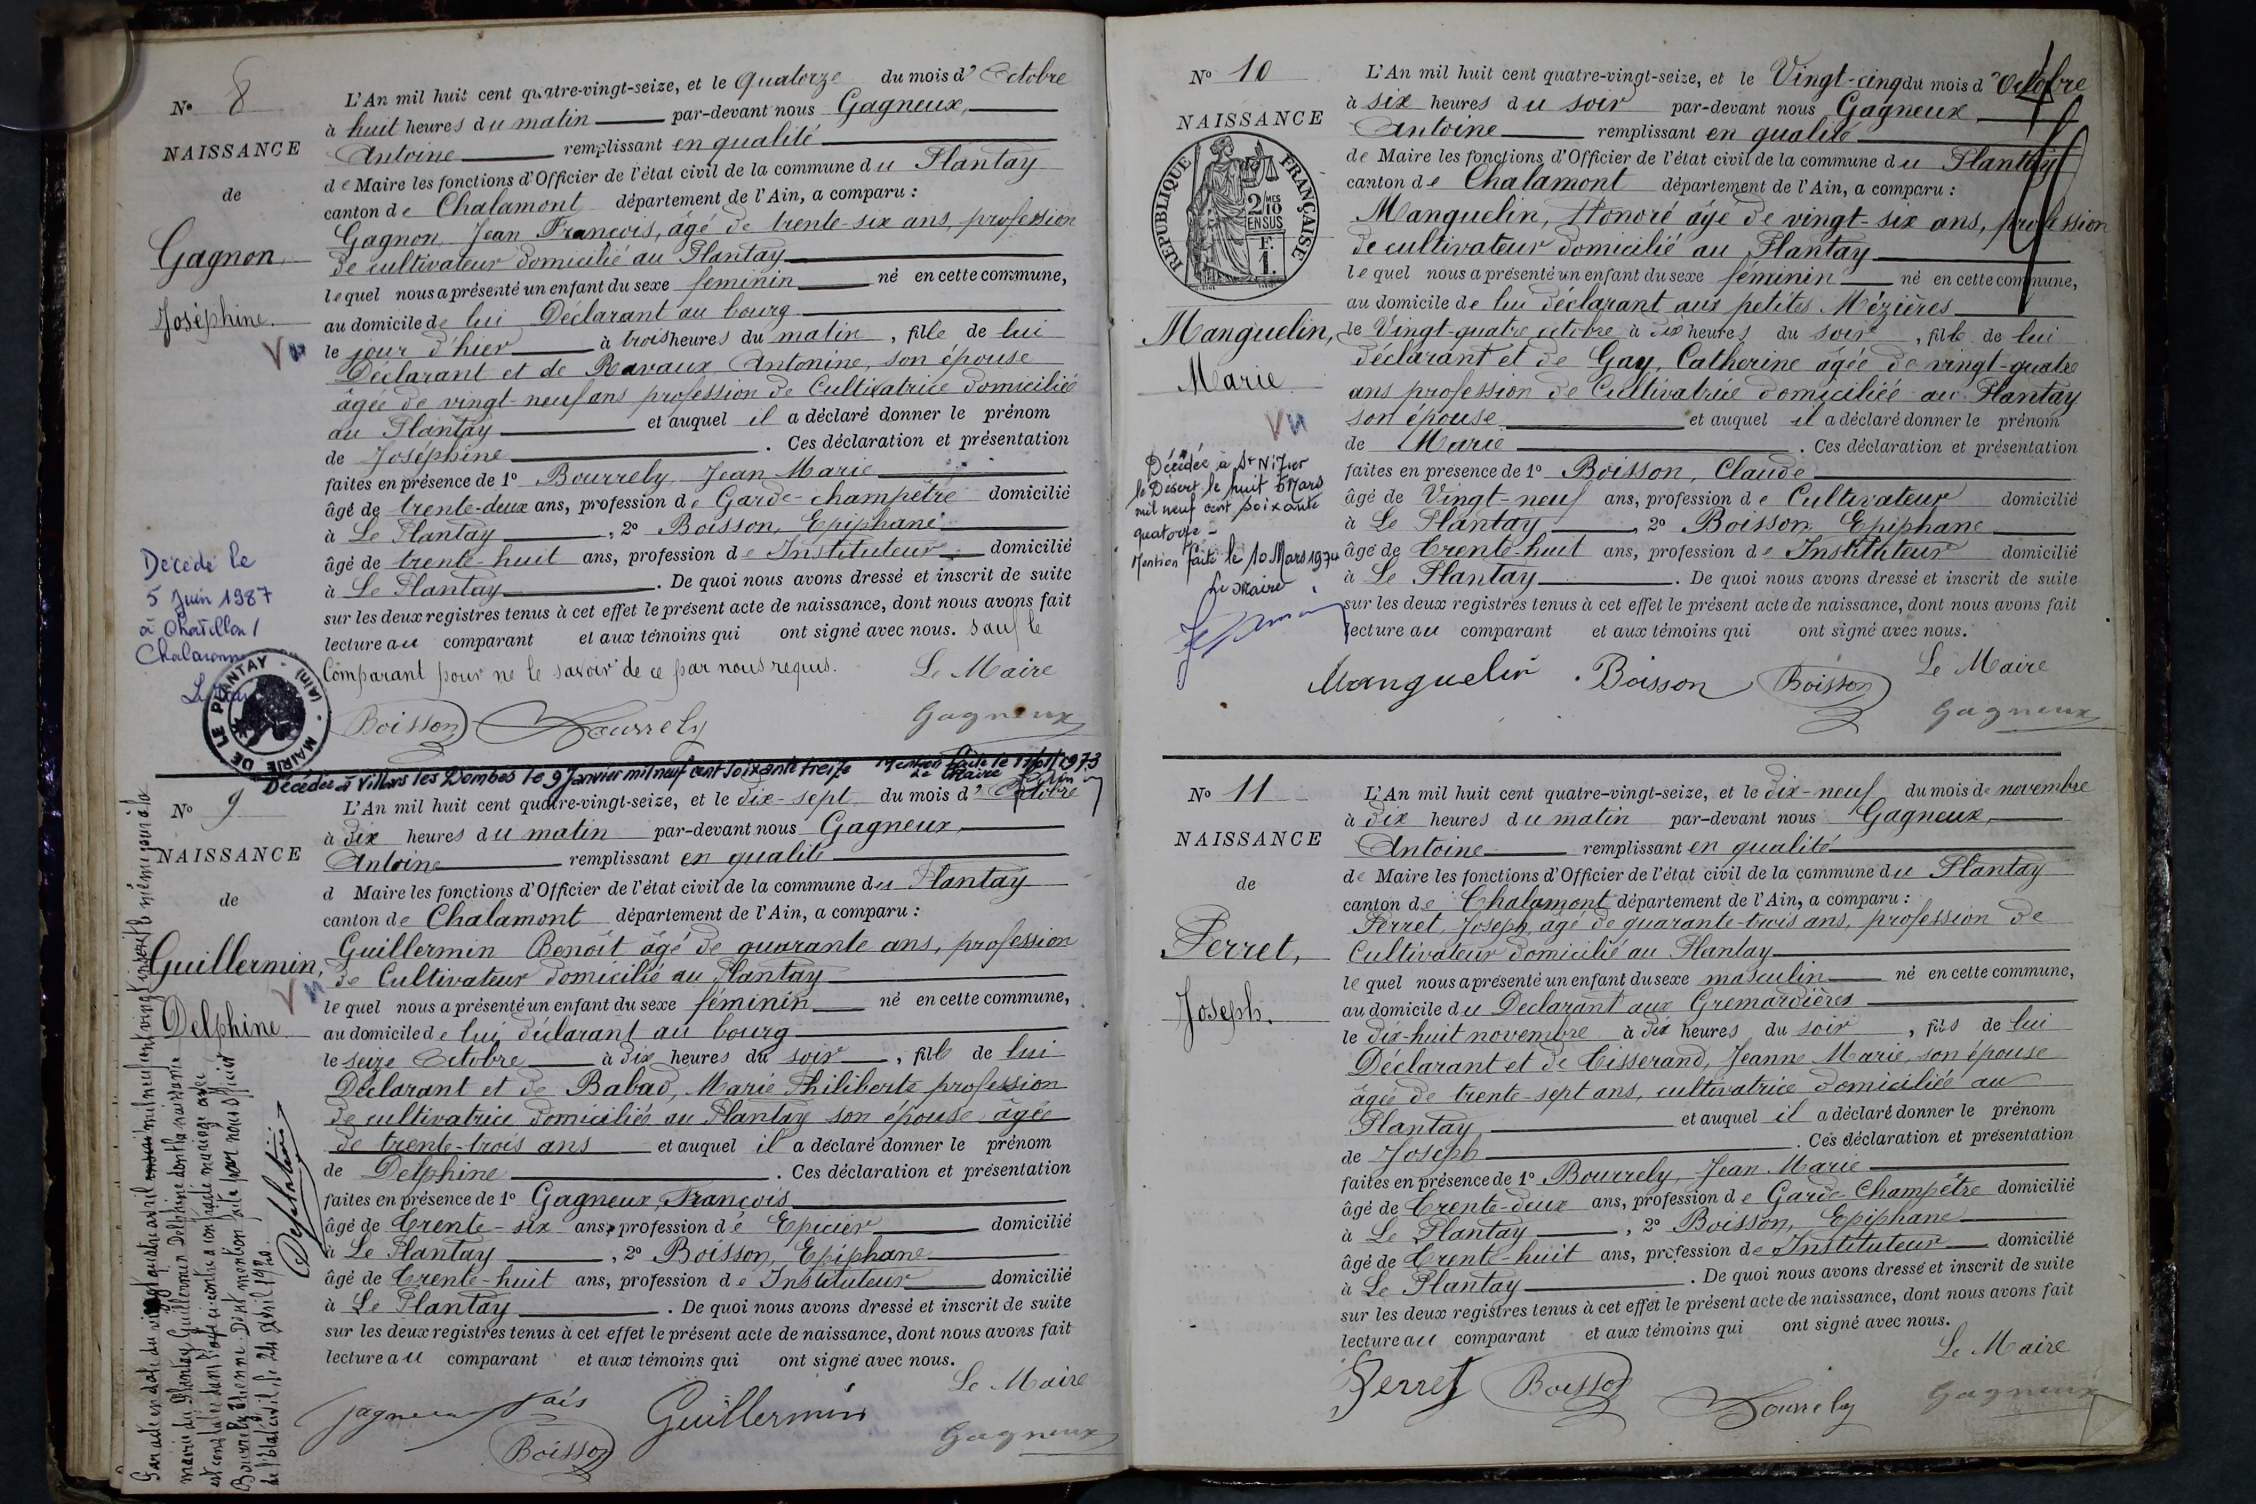 N° 8
NAISSANCE
de
Gagnon
Joséphine.
L'An mil huit cent quatre-vingt-seize, et le quatorze du mois d'Octobre
à huit heures du matin par-devant nous Gagneux,
Antoine remplissant en qualité
de Maire les fonctions d'Officier de l'état civil de la commune du Plantay
canton de Chalamont département de l'Ain, a comparu :
Gagnon Jean François, âgé de trente-six ans, profession
de cultivateur domicilié au Plantay
lequel nous a présenté un enfant du sexe feminin né en cette commune,
au domicile de lui Déclarant au bourg
le jour d'hier à trois heures du matin, fille de lui
Déclarant et de Ravaux Antonine, son épouse
âgée de vingt-neuf ans profession de Cultivatrice domiciliée
au Plantay et auquel il a déclaré donner le prénom
de Joséphine. Ces déclaration et présentation
faites en présence de 1° Bourrely Jean Marie
âgé de trente-deux ans, profession de Garde-champêtre domicilié
à Le Plantay, 2° Boisson, Epiphane
âgé de trente-huit ans, profession de Instituteur domicilié
à Le Plantay. De quoi nous avons dressé et inscrit de suite
sur les deux registres tenus à cet effet le présent acte de naissance, dont nous avons fait
lecture au comparant et aux témoins qui ont signé avec nous. Sauf le
Comparant pour ne le savoir de ce par nous requis. Le Maire
Boisson Bourrely Gagneux
Décédé le
5 Juin 1987
à Chatillon/
Chalaronne
MAIRIE DE LE PLANTAY (AIN)
Décédée à Villars les Dombes le 9 Janvier mil neuf cent soixante treize
Mention faite le 1973
Le Maire
N° 9
NAISSANCE
de
Guillermin,
Delphine
L'An mil huit cent quatre-vingt-seize, et le dix-sept du mois d'Octobre
à dix heures du matin par-devant nous Gagneux,
Antoine remplissant en qualité
d Maire les fonctions d'Officier de l'état civil de la commune du Plantay
canton de Chalamont département de l'Ain, a comparu :
Guillermin Benoît âgé de quarante ans, profession
de Cultivateur domicilié au Plantay
lequel nous a présenté un enfant du sexe féminin né en cette commune,
au domicile de lui déclarant au bourg
le seize Octobre à dix heures du soir, fille de lui
Déclarant et de Babad, Marie Philiberte profession
de cultivatrice domiciliée au Plantay son épouse âgée
de trente-trois ans et auquel il a déclaré donner le prénom
de Delphine. Ces déclaration et présentation
faites en présence de 1° Gagneux, François
âgé de Trente-six ans, profession d'é Epicier domicilié
à Le Plantay, 2° Boisson, Epiphane
âgé de Trente-huit ans, profession de Instituteur domicilié
à Le Plantay. De quoi nous avons dressé et inscrit de suite
sur les deux registres tenus à cet effet le présent acte de naissance, dont nous avons fait
lecture au comparant et aux témoins qui ont signé avec nous.
Le Maire
Gagneux Guillermin
Boisson Gagneux
Par acte en date du vingt quatre avril mil neuf cent vingt inscrit le même jour à la
mairie du Plantay Guillermin Delphine dont la naissance
est constatée dans l'acte ci-contre a contracté mariage avec
Bourrely Etienne Dont mention faite par nous officier
de l'état civil le 24 avril 1920
N° 10
NAISSANCE
RÉPUBLIQUE FRANÇAISE
2/10 MES
EN SUS
1 F.
Manguelin,
Marie
L'An mil huit cent quatre-vingt-seize, et le Vingt-cinq du mois d'Octobre
à six heures du soir par-devant nous Gagneux
Antoine remplissant en qualité
de Maire les fonctions d'Officier de l'état civil de la commune du Plantay
canton de Chalamont département de l'Ain, a comparu :
Manguelin, Honoré âge de vingt-six ans, profession
de cultivateur domicilié au Plantay
lequel nous a présenté un enfant du sexe féminin né en cette commune,
au domicile de lui déclarant aux petites Mézières
le Vingt-quatre octobre à dix heures du soir, fille de lui
déclarant et de Gay, Catherine âgée de vingt-quatre
ans profession de Cultivatrice domiciliée au Plantay
son épouse et auquel il a déclaré donner le prénom
de Marie. Ces déclaration et présentation
faites en présence de 1° Boisson, Claude
âgé de Vingt-neuf ans, profession de Cultivateur domicilié
à Le Plantay, 2° Boisson, Epiphane
âgé de Trente-huit ans, profession de Instituteur domicilié
à Le Plantay. De quoi nous avons dressé et inscrit de suite
sur les deux registres tenus à cet effet le présent acte de naissance, dont nous avons fait
lecture au comparant et aux témoins qui ont signé avec nous.
Le Maire
Manguelin Boisson Boisson Gagneux
Décédée à St Nizier
le Désert le huit Mars
mil neuf cent soixante
quatorze -
Mention faite le 10 Mars 1974
Le Maire
N° 11
NAISSANCE
de
Perret,
Joseph.
L'An mil huit cent quatre-vingt-seize, et le dix-neuf du mois de novembre
à dix heures du matin par-devant nous Gagneux,
Antoine remplissant en qualité
de Maire les fonctions d'Officier de l'état civil de la commune du Plantay
canton de Chalamont département de l'Ain, a comparu :
Perret, Joseph, âgé de quarante-trois ans, profession de
Cultivateur domicilié au Plantay
lequel nous a présenté un enfant du sexe masculin né en cette commune,
au domicile du Declarant aux Gremardières
le dix-huit novembre à dix heures du soir, fils de lui
Déclarant et de Tisserand, Jeanne Marie, son épouse
âgée de trente-sept ans, cultivatrice domiciliée au
Plantay et auquel il a déclaré donner le prénom
de Joseph. Ces déclaration et présentation
faites en présence de 1° Bourrely, Jean Marie
âgé de Trente-deux ans, profession de Garde-Champêtre domicilié
à Le Plantay, 2° Boisson, Epiphane
âgé de Trente-huit ans, profession de Instituteur domicilié
à Le Plantay. De quoi nous avons dressé et inscrit de suite
sur les deux registres tenus à cet effet le présent acte de naissance, dont nous avons fait
lecture au comparant et aux témoins qui ont signé avec nous.
Le Maire
Perret Boisson Bourrely Gagneux